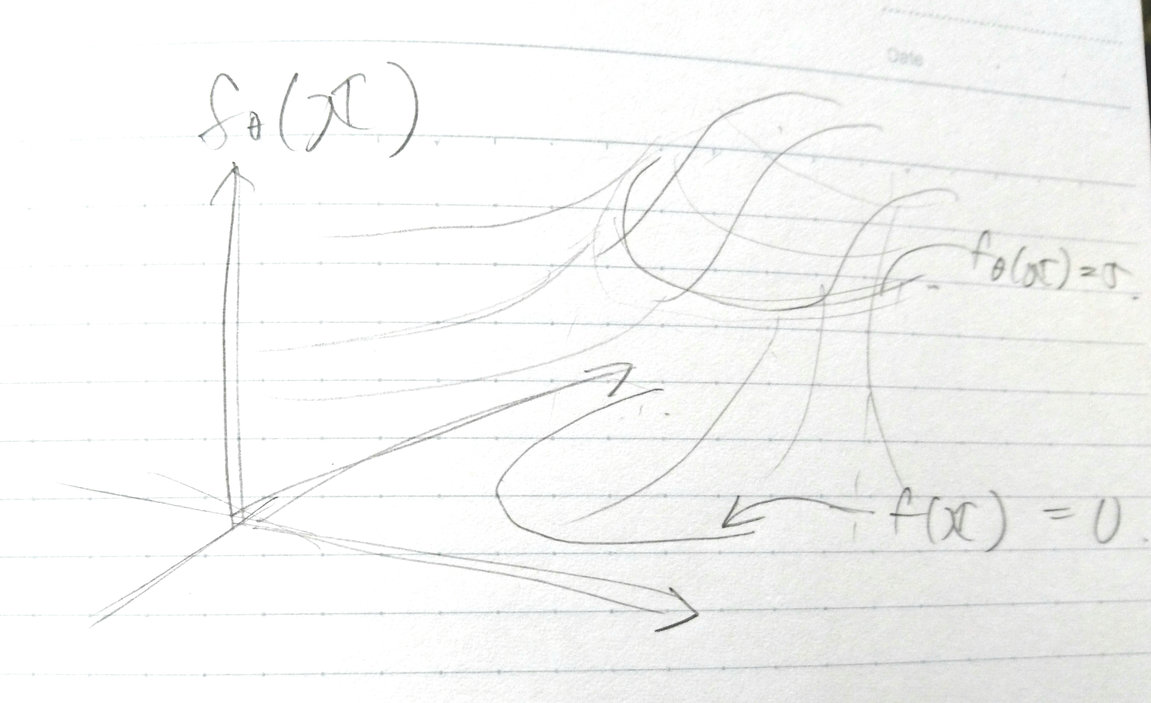 Date
f_θ(x)
f_θ(x)=σ.
f(x) = 0.